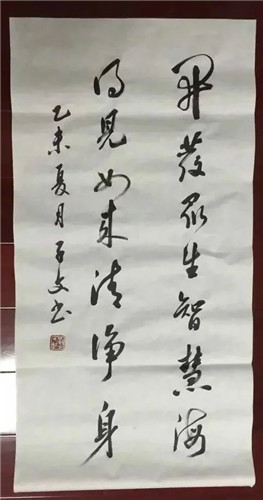 開發眾生智慧海
得見如来清淨身
乙未夏月子文书